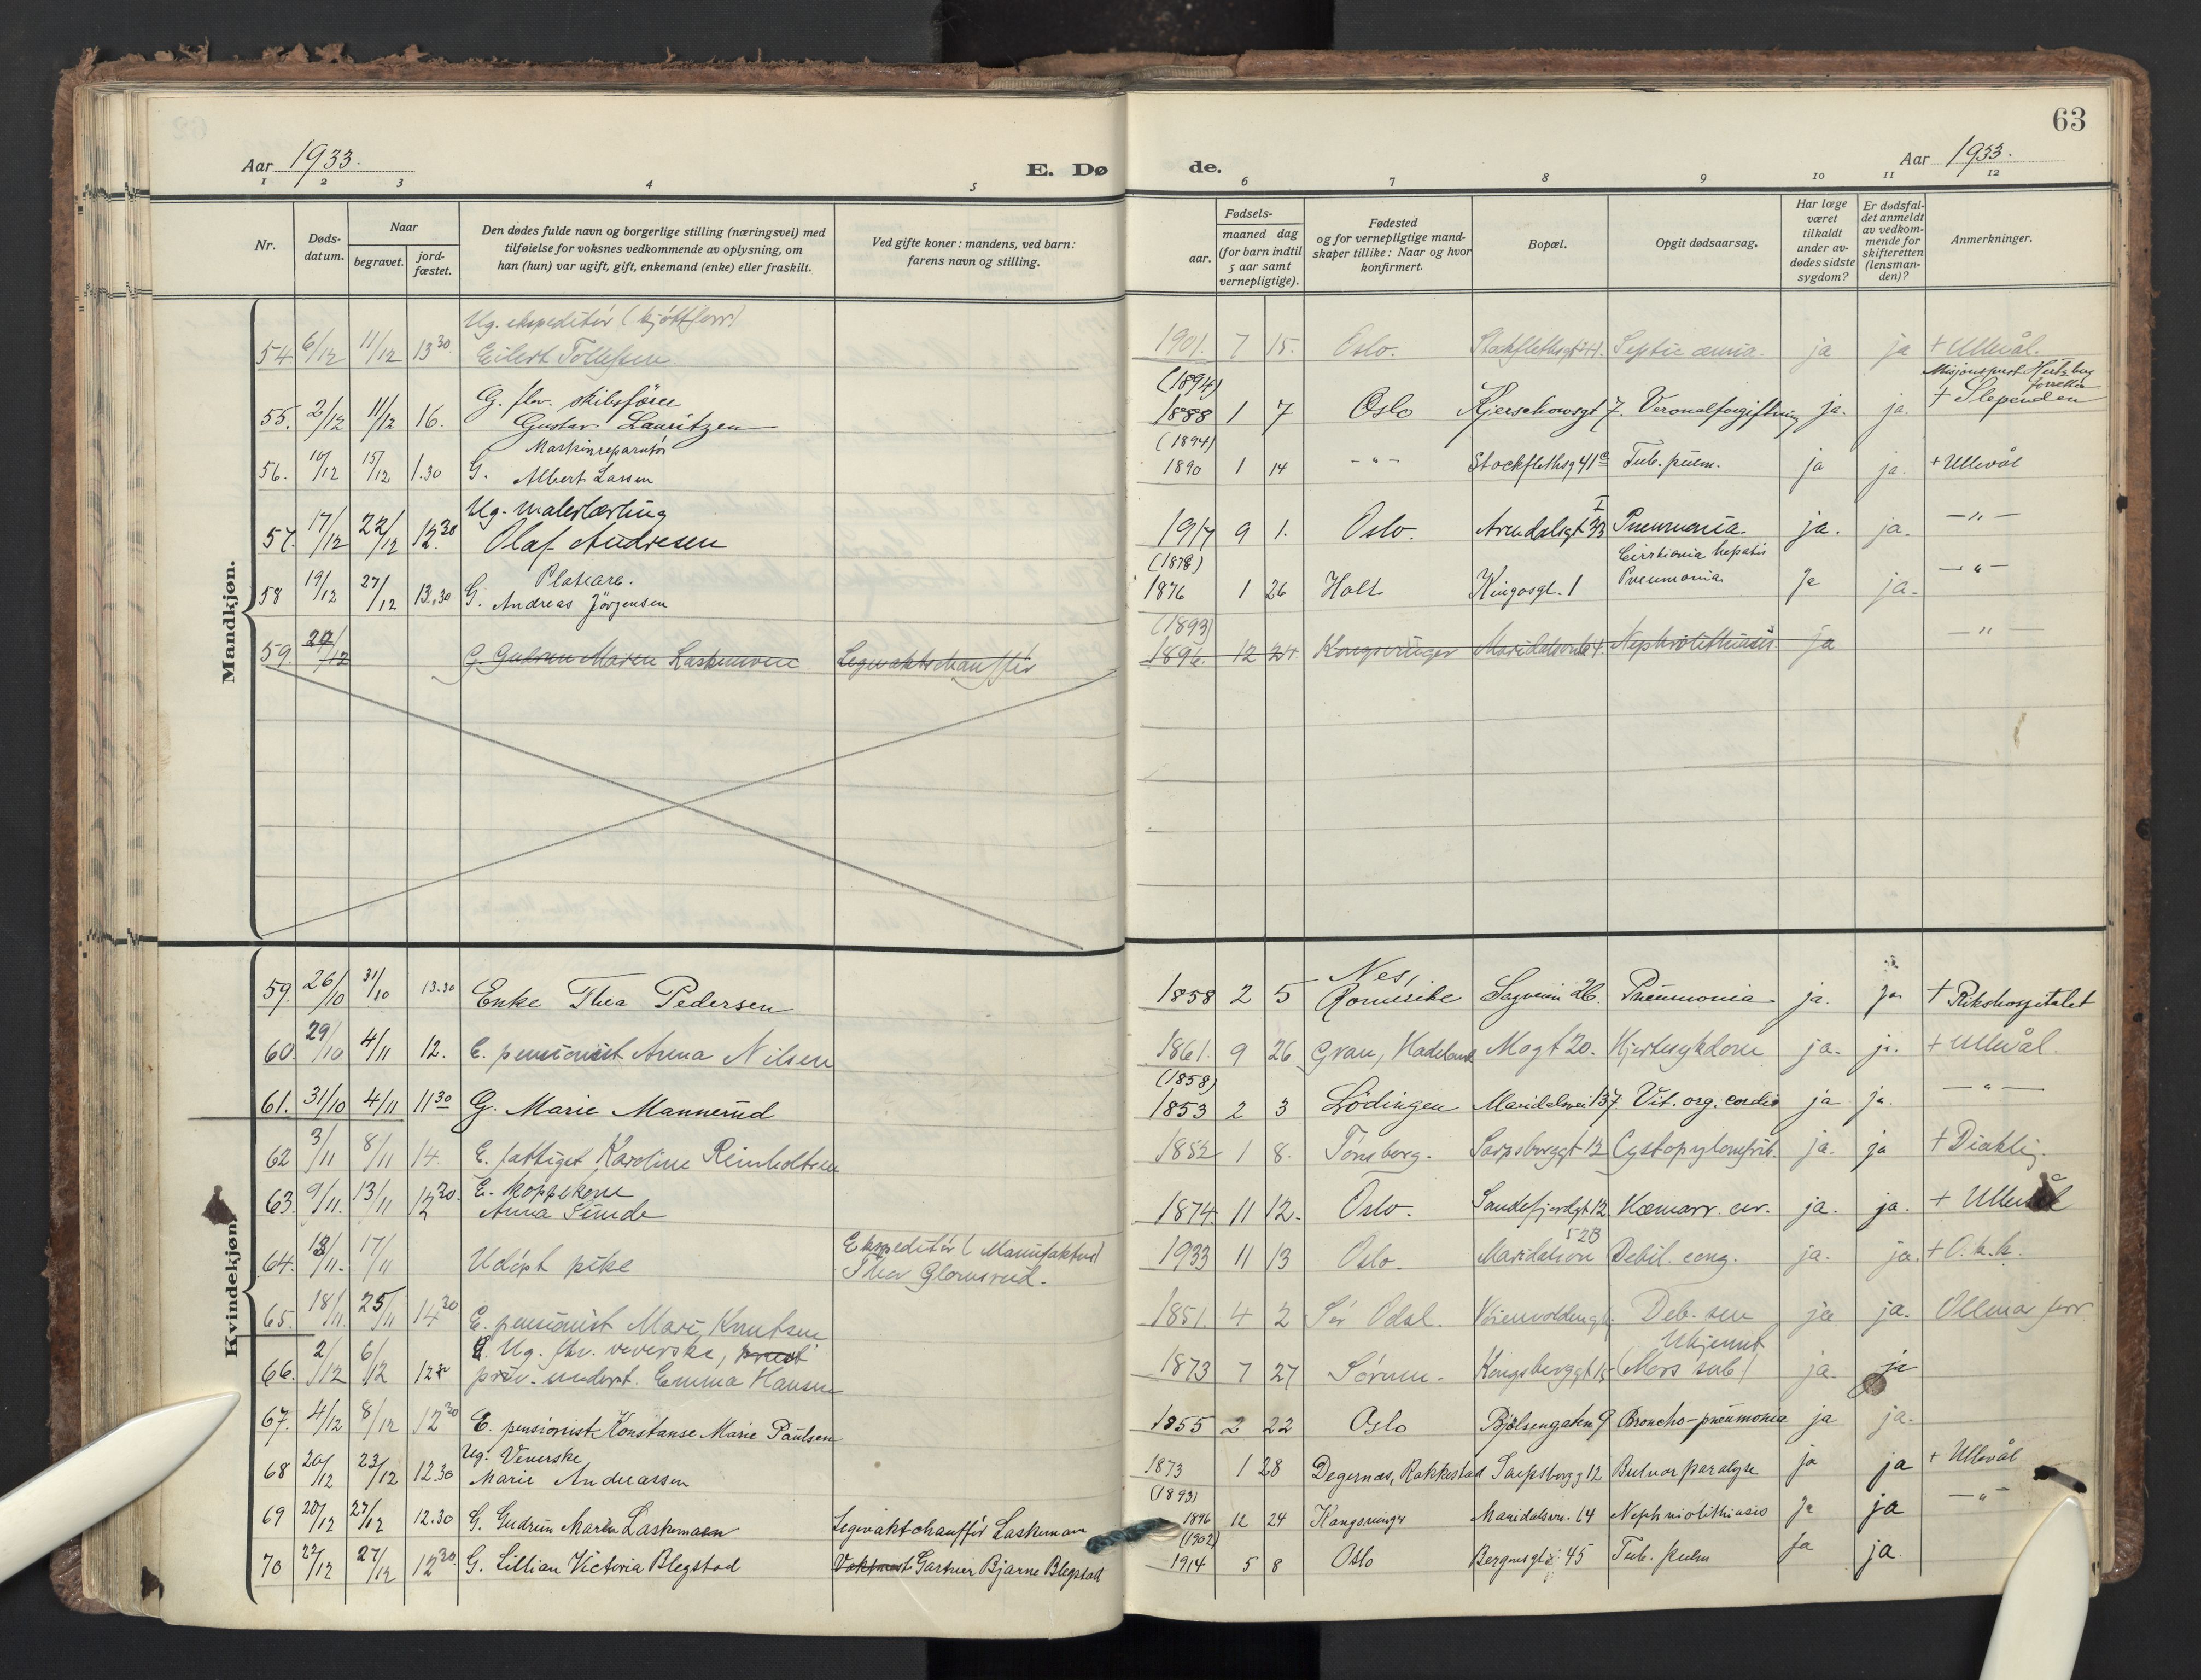 63
Aar 1933.
E. Dø de.
Aar 1933.
1 2 3 4 5 6 7 8 9 10 11 12
Nr.
Døds-
datum.
Naar
begravet.
jord-
fæstet.
Den dødes fulde navn og borgerlige stilling (næringsvei) med
tilføielse for voksnes vedkommende av oplysning, om
han (hun) var ugift, gift, enkemand (enke) eller fraskilt.
Ved gifte koner: mandens, ved barn:
farens navn og stilling.
Fødsels-
aar.
maaned dag
(for barn indtil
5 aar samt
vernepligtige).
Fødested
og for vernepligtige mand-
skaper tillike: Naar og hvor
konfirmert.
Bopæl.
Opgit dødsaarsag.
Har læge
været
tilkaldt
under av-
dødes sidste
sygdom?
Er dødsfal-
det anmeldt
av vedkom-
mende for
skifteretten
(lensman-
den)?
Anmerkninger.
Mandkjøn.
Ug. ekspeditör (kjöttforr)
54. 6/12 11/12 13 30 Eilert Tollefsen 1901. 7 15. Oslo. Stockflethsgt 41. Septic æmia. ja ja + Ullevål.
Misjonsprest Hertzberg
forretta
(1894)
G. fhv. skibsförer
55. 2/12 11/12 16. Gustav Lauritzen 1888 1 7 Oslo Kjerschowsgt 7. Veronalforgiftning ja. ja. + Slependen
(1894)
Maskinreparatör
56. 10/12 15/12 1.30 G. Albert Larsen 1890 1 14 - " - Stockflethsg 41 Tub. pulm. ja ja. + Ullevål
Ug. malerlærling
57. 17/12 22/12 12.30 Olaf Andresen 1917 9 1. Oslo. Arendalsgt 33 I Pneumonia. ja. ja. - " -
(1878) Cirrhonia hepatis
Platearb.
58 19/12 27/12 13.30 G. Andreas Jörgensen 1876 1 26 Holt Kingosgt. 1 Pneumonia ja ja. - " -
(1893)
59. 20/12 G. Gudrun Maren Laskemoen Legevaktschaufför 1896. 12 24. Kongsvinger Maridalsvn 64. Nephrolithiasis ja - " -
Kvindekjøn.
Nes,
59. 26/10 31/10 13.30 Enke Thea Pedersen 1858 2 5 Romerike Sagveien 26. Pneumonia ja. ja + Rikshospitalet
60. 29/10 4/11 12. E. pensionist Anna Nilsen 1861. 9 26 Gran, Hadeland Mogt 20. Hjertesykdom ja. ja. + Ullevål.
(1858)
61. 31/10 4/11 11 30 G. Marie Mannerud 1853 2 3 Lödingen Maridalsvei 137. Vit. org. cordis ja ja. - " -
62 3/11 8/11 14. E. fattiget Karoline Reinholtsen 1852 1 8. Tönsberg. Sarpsborggt 12 ja. ja
E. koppekone
63. 9/11. 13/11 12 30. Anna Sunde 1874 11 12. Oslo. Sandefjordgt 12 Hæmorr. cer. ja. ja. + Ullevål
Ekspeditör (Manufaktur) 52B
64. 13/11. 17/11 Udöpt pike Thor Glomsrud. 1933 11 13 Oslo. Maridalsvn Debil. cong. ja. ja. + O. k. k.
65. 18/11. 25/11 14 30 E. pensionist Mari Knutsen 1851. 4 2 Sör Odal. Deb. sen ja ja.
E. Ug. fhv. veverske, Ukjennt
66. 2/12 6/12 12 30 priv. underst. Emma Hansen 1873 7 27 Sörum. Kongsberggt 15 (Mors sub) ja. ja
67. 4/12 8/12 12 30 E. pensionist Konstanse Marie Paulsen 1855 2 22 Oslo Bjölsengaten 9 Broncho-pneumonia ja ja.
Ug. Veverske
68 20/12 23/12 12.30 Marie Andreassen 1873 1 28 Degernes, Rakkestad Sarpsborgg 12 Bulvar paralyse ja ja + Ullevål
(1893)
69 20/12 27/12 12.30 G. Gudrun Maren Laskemoen Legevaktchaufför Laskemoen 1896 12 24 Kongsvinger Maridalsvn. 64 Nephrolithiasis ja ja - " -
(1902)
70 22/12 27/12 12 30. G. Lillian Victoria Blegstad Vaktmest Gartner Bjarne Blegstad 1914 5 8 Oslo Bergensgt 45 Tub. pulm ja ja.